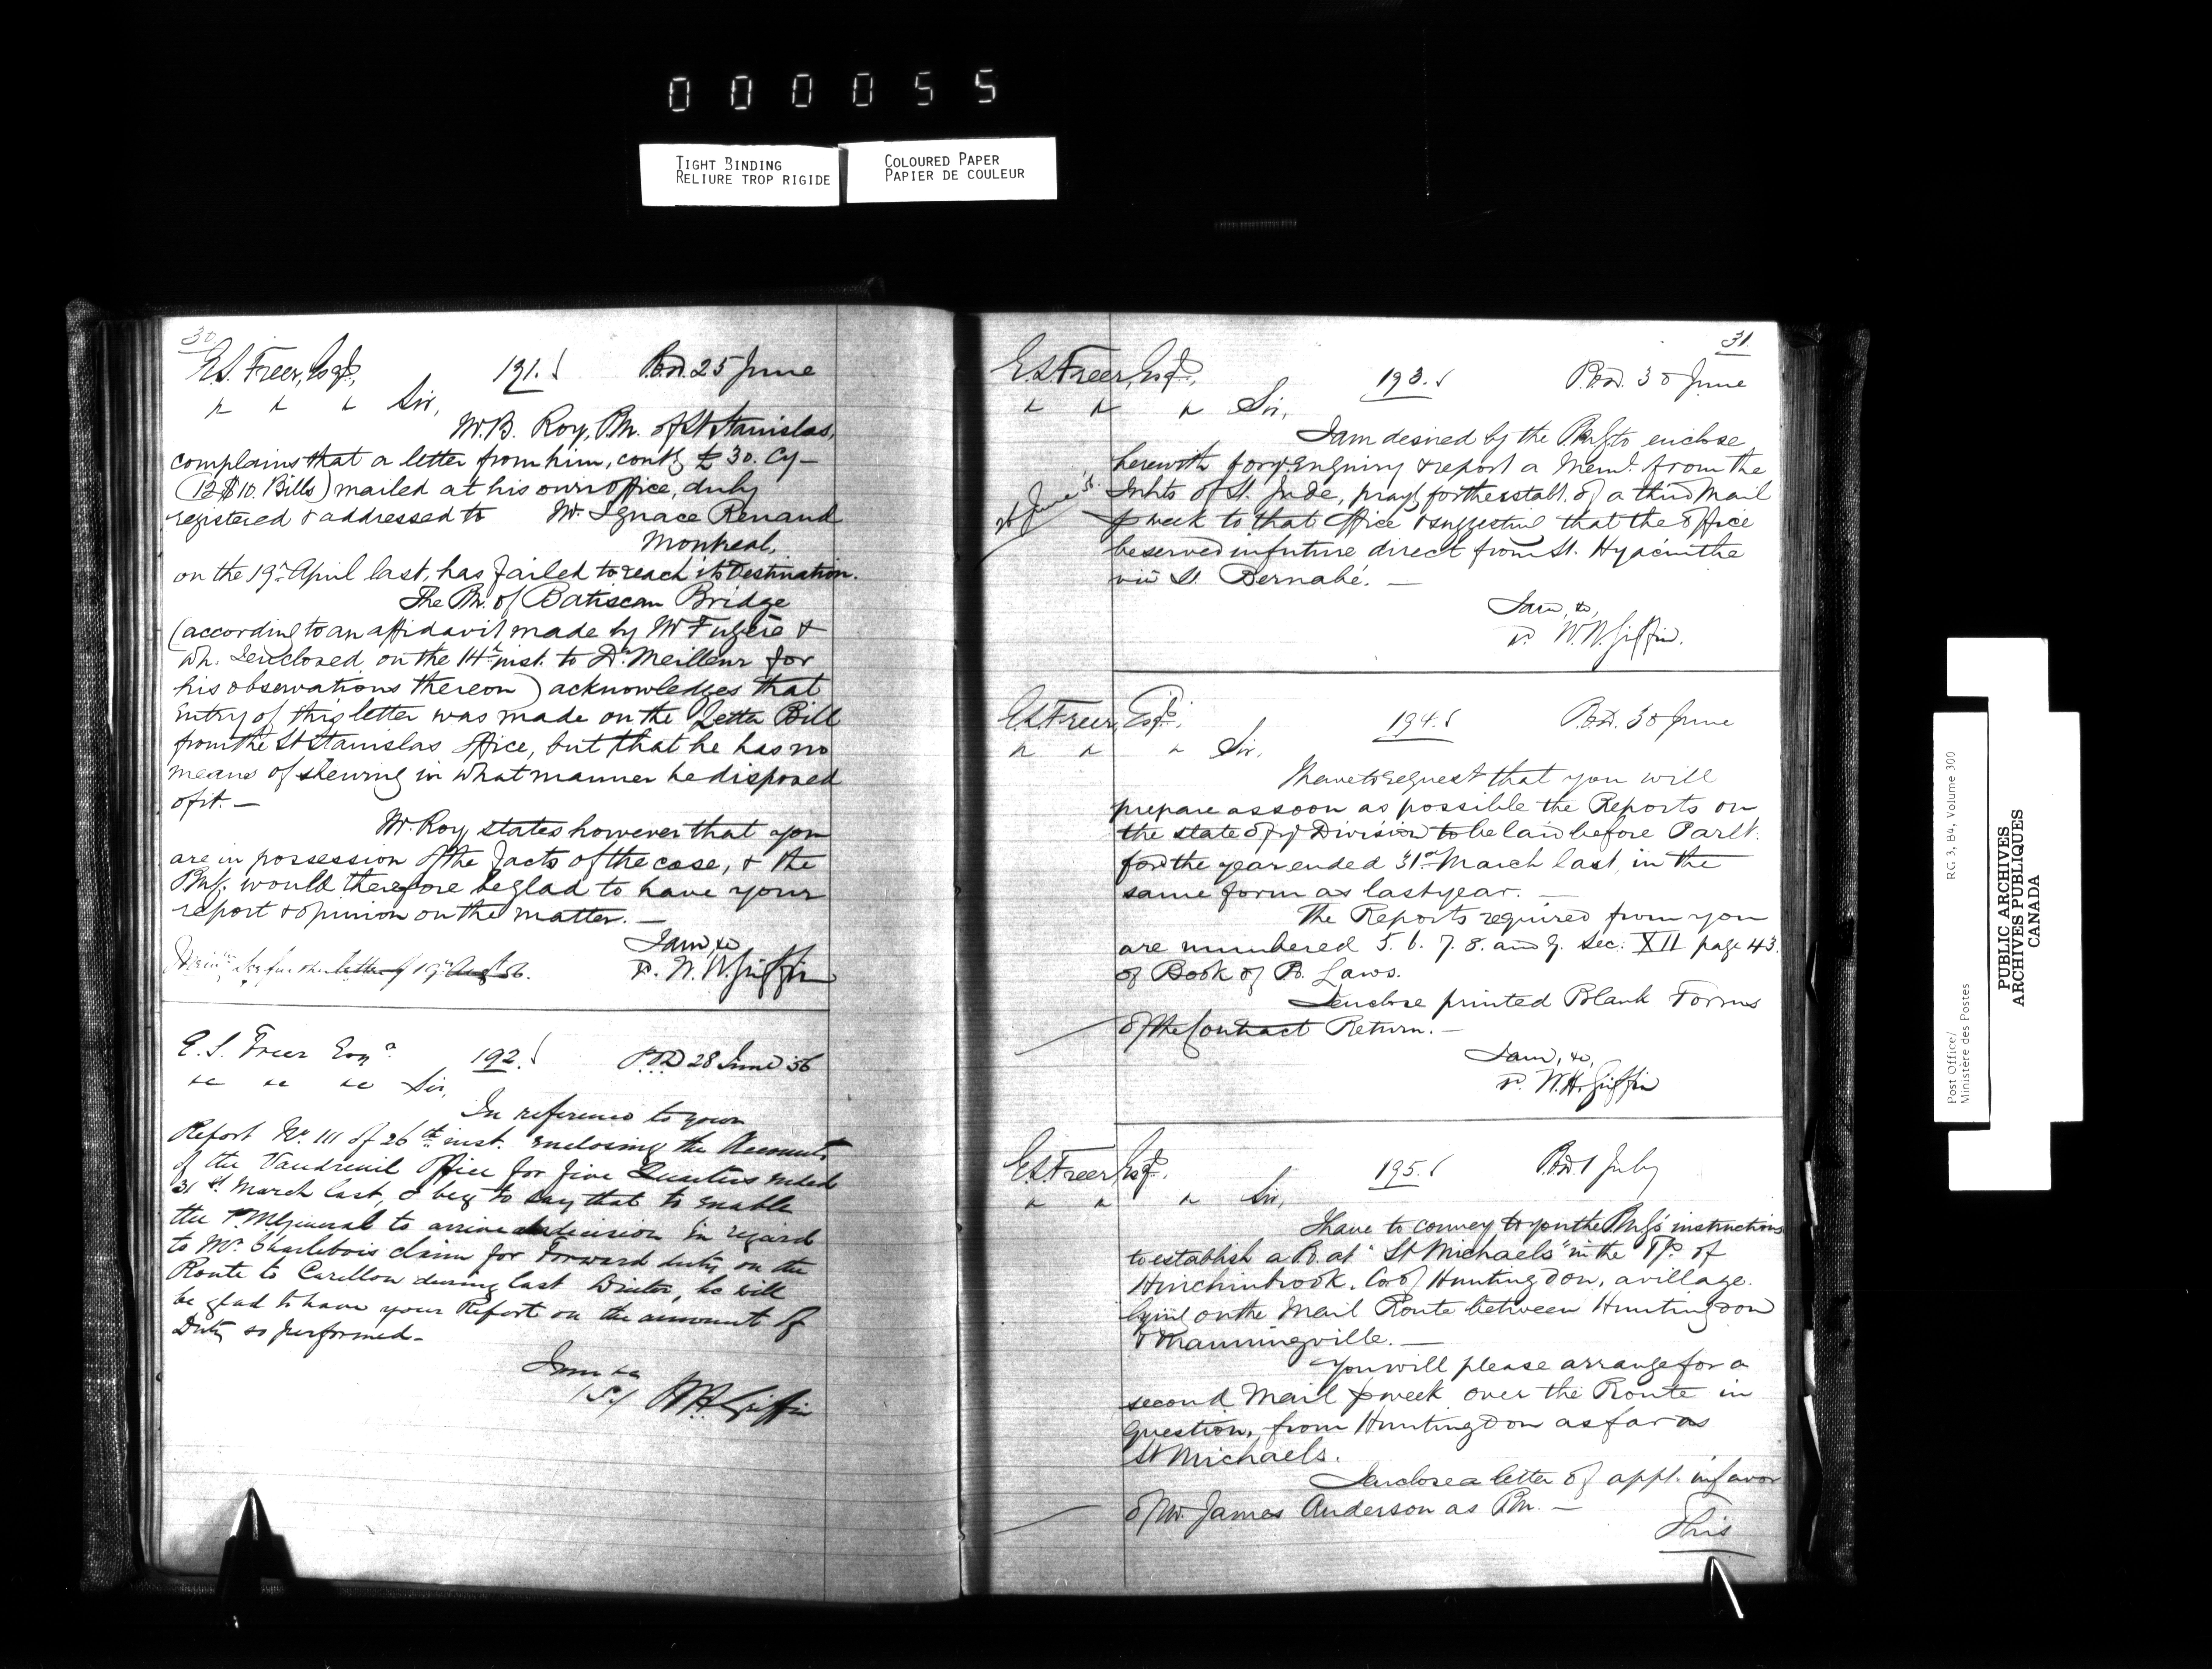 000055
TIGHT BINDING
RELIURE TROP RIGIDE
COLOURED PAPER
PAPIER DE COULEUR
30
E.S. Freer, Esqr, 191. P.O.D. 25 June
" " " Sir,
Mr. B. Roy, P.M. of St Stanislas,
complains that a letter from him, contg £30. Cy—
(12 $10. Bills) mailed at his own office, duly
registered & addressed to Mr. Ignace Renaud
Montreal,
on the 19th April last, has failed to reach its Destination.
The P.M. of Batiscan Bridge
(according to an affidavit made by Mr Fugère &
wh. I enclosed, on the 14th inst. to Dr. Meilleur for
his observations thereon) acknowledges that
entry of this letter was made on the Letter Bill
from the St Stanislas Office, but that he has no
means of shewing in what manner he disposed
of it. —
Mr. Roy, states however that you
are in possession of the facts of the case, & the
P.M.G. would therefore be glad to have your
report & opinion on the matter. —
I am, &c
letter of 19th Augt 56. p. W. H. Griffin
E. S. Freer Esqr. 192. P.O.D 28 June 56
" " " Sir,
In reference to your
Report No. 111 of 26th inst. enclosing the Accounts
of the Vaudreuil Office for five Quarters ended
31st March last, I beg to say that to enable
the P.M. General to arrive at a decision in regard
to Mr. Charlebois claim for Forward duty on the
Route to Carillon during last Winter, he will
be glad to have your Report on the amount of
Duty so performed—
I am &c
(S.) W H Griffin
31
E.S. Freer, Esqr, 193. P.O.D. 30 June
" " " Sir,
I am desired by the P.M.G. to enclose
herewith for yr. enquiry & report a Meml. from the
Inhts of St. Jude, prayg for the establ. of a third Mail
p week to that office & suggesting that the office
be served in future direct from St. Hyacinthe
via St. Bernabé. —
I am, &c,
p. W. H. Griffin.
E.S. Freer, Esqr, 194. P.O.D. 30 June
" " " Sir,
I have to request that you will
prepare as soon as possible the Reports on
the state of yr Division to be laid before Parlt.
for the year ended 31st March last, in the
same form as last year. —
The Reports required from you
are numbered 5. 6. 7. 8. and 9. Sec: XII page 43.
of Book of P.O. Laws.
I enclose printed Blank Forms
of the Contract Return. —
I am, &c,
p. W. H. Griffin
E.S. Freer, Esqr. 195. P.O.D. 1 July
" " " Sir,
I have to convey to you the P.M.G's instructions
to establish a P.O. at "St Michaels" in the Tp. of
Hinchinbrook, Co. of Huntingdon, a village
lying on the Mail Route between Huntingdon
& Manningville. —
You will please arrange for a
second Mail p week over the Route in
question, from Huntingdon as far as
St Michaels.
I enclose a letter of appt. in favor
of Mr. James Anderson as P.M. —
This
Post Office/
Ministère des Postes
RG 3, B4, Volume 300
PUBLIC ARCHIVES
ARCHIVES PUBLIQUES
CANADA